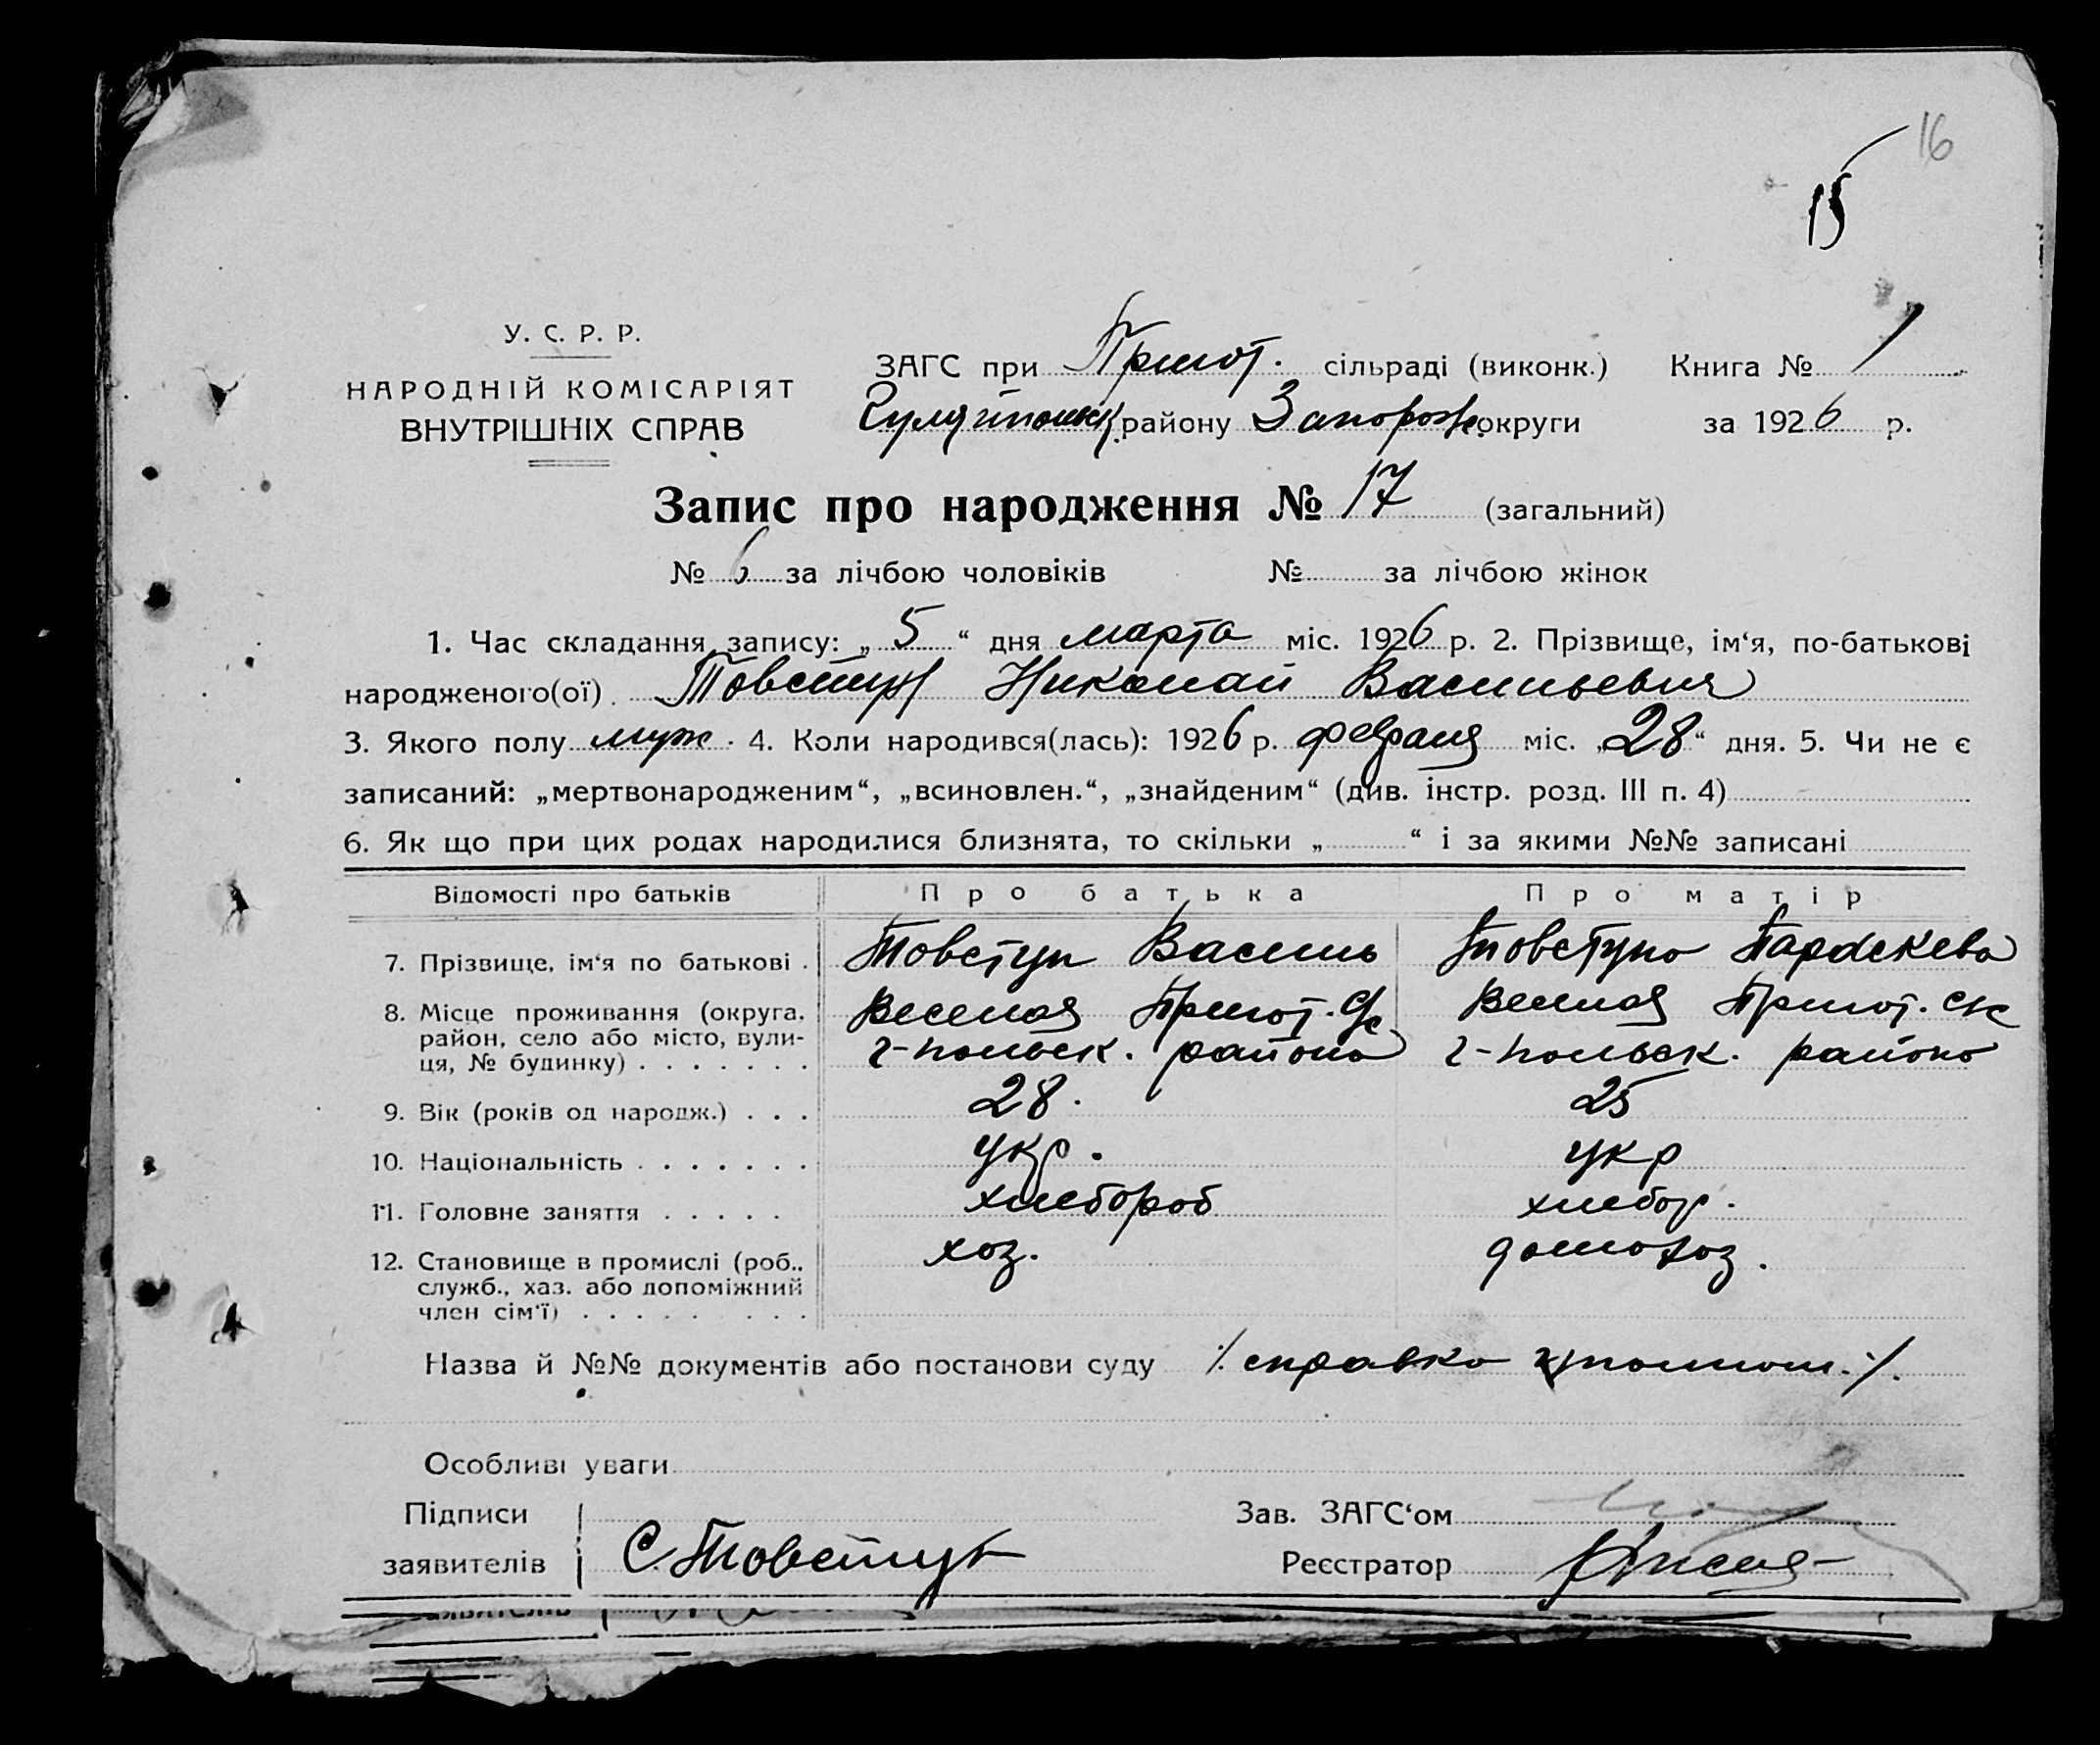 16
15
У. С. Р. Р.
НАРОДНІЙ КОМІСАРІЯТ
ВНУТРІШНІХ СПРАВ
ЗАГС при Пришт. сільраді (виконк.) Книга № 1
Гуляйпольск. району Запорож. округи за 1926 р.
Запис про народження № 17 (загальний)
№ 6 за лічбою чоловіків № за лічбою жінок
1. Час складання запису: „ 5 “ дня марта міс. 1926 р. 2. Прізвище, ім‘я, по-батькові
народженого(ої) Товступ Николай Васильевич
3. Якого полу муж. 4. Коли народився(лась): 1926 р. февраля міс. „28“ дня. 5. Чи не є
записаний: „мертвонародженим“, „всиновлен.“, „знайденим“ (див. інстр. розд. III п. 4)
6. Як що при цих родах народилися близнята, то скільки „ “ і за якими №№ записані
Відомості про батьків Про батька Про матір
7. Прізвище, ім‘я по батькові . Товступ Василь Товступа Параскева
8. Місце проживання (округа, Веселая С/с Веселая СК
район, село або місто, вули- г-польск. района г-польск. района
ця, № будинку) . . . . . . .
9. Вік (років од народж.) . . . 28. 25
10. Національність . . . . . . . укр. укр
11. Головне заняття . . . . . хлебороб хлебор.
12. Становище в промислі (роб., хоз. домохоз.
служб., хаз. або допоміжний
член сім‘ї) . . . . . . . .
Назва й №№ документів або постанови суду /. справка уполном. ./.
Особливі уваги
Підписи Зав. ЗАГС‘ом
заявителів С. Товступ Реєстратор